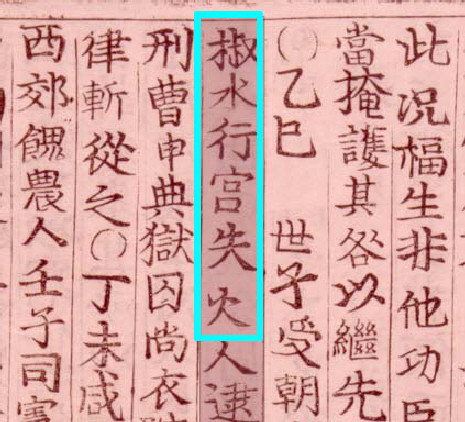 此况福生非他功臣
當掩護其咎以繼先
〇乙巳 世子受朝
椒水行宮失火人逮
刑曹申典獄囚尚衣
律斬從之〇丁未咸
西郊餽農人壬子司